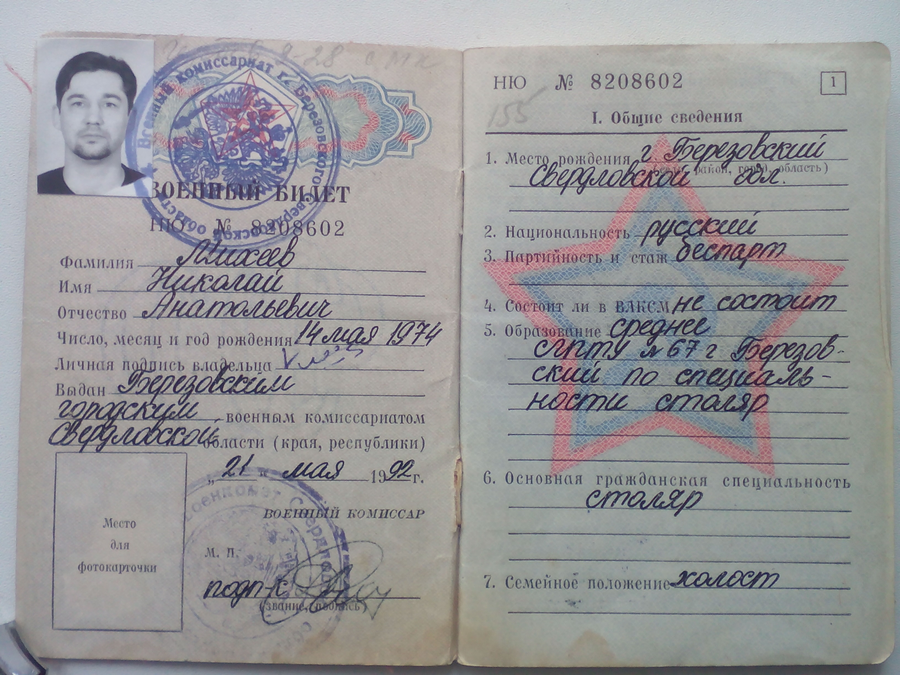 Военный комиссариат г. Березовского
Свердловской области
ВОЕННЫЙ БИЛЕТ
НЮ № 8208602
Фамилия Михеев
Имя Николай
Отчество Анатольевич
Число, месяц и год рождения 14 мая 1974
Личная подпись владельца
Выдан Березовским
городским военным комиссариатом
Свердловской области (края, республики)
„21 “ мая 1992г.
ВОЕННЫЙ КОМИССАР
Место
для
фотокарточки
М. П.
подп-к
(звание, подпись)
НЮ № 8208602
1
155
I. Общие сведения
1. Место рождения г. Березовский
(село, район, город, область)
Свердловской обл.
2. Национальность русский
3. Партийность и стаж беспарт
4. Состоит ли в ВЛКСМ не состоит
5. Образование среднее
СПТУ № 67 г. Березов-
ский по специаль-
ности столяр
6. Основная гражданская специальность
столяр
7. Семейное положение холост